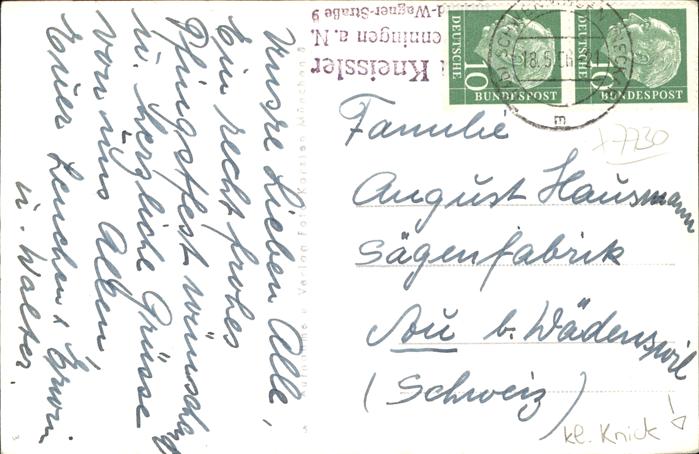 Unsre Lieben Alle,
Ein recht frohes
Pfingstfest wünscht
u. herzliche Grüsse
von uns Allen
Euer Lenchen, Erwin
u. Walter.
Kneissler
enningen a. N.
d-Wagner-Straße 9
DEUTSCHE
10
BUNDESPOST
DEUTSCHE
10
BUNDESPOST
18.5.
Familie
August Hausmann
Sägenfabrik
Au b. Wädenswil
(Schweiz)
7730
kl. Knick